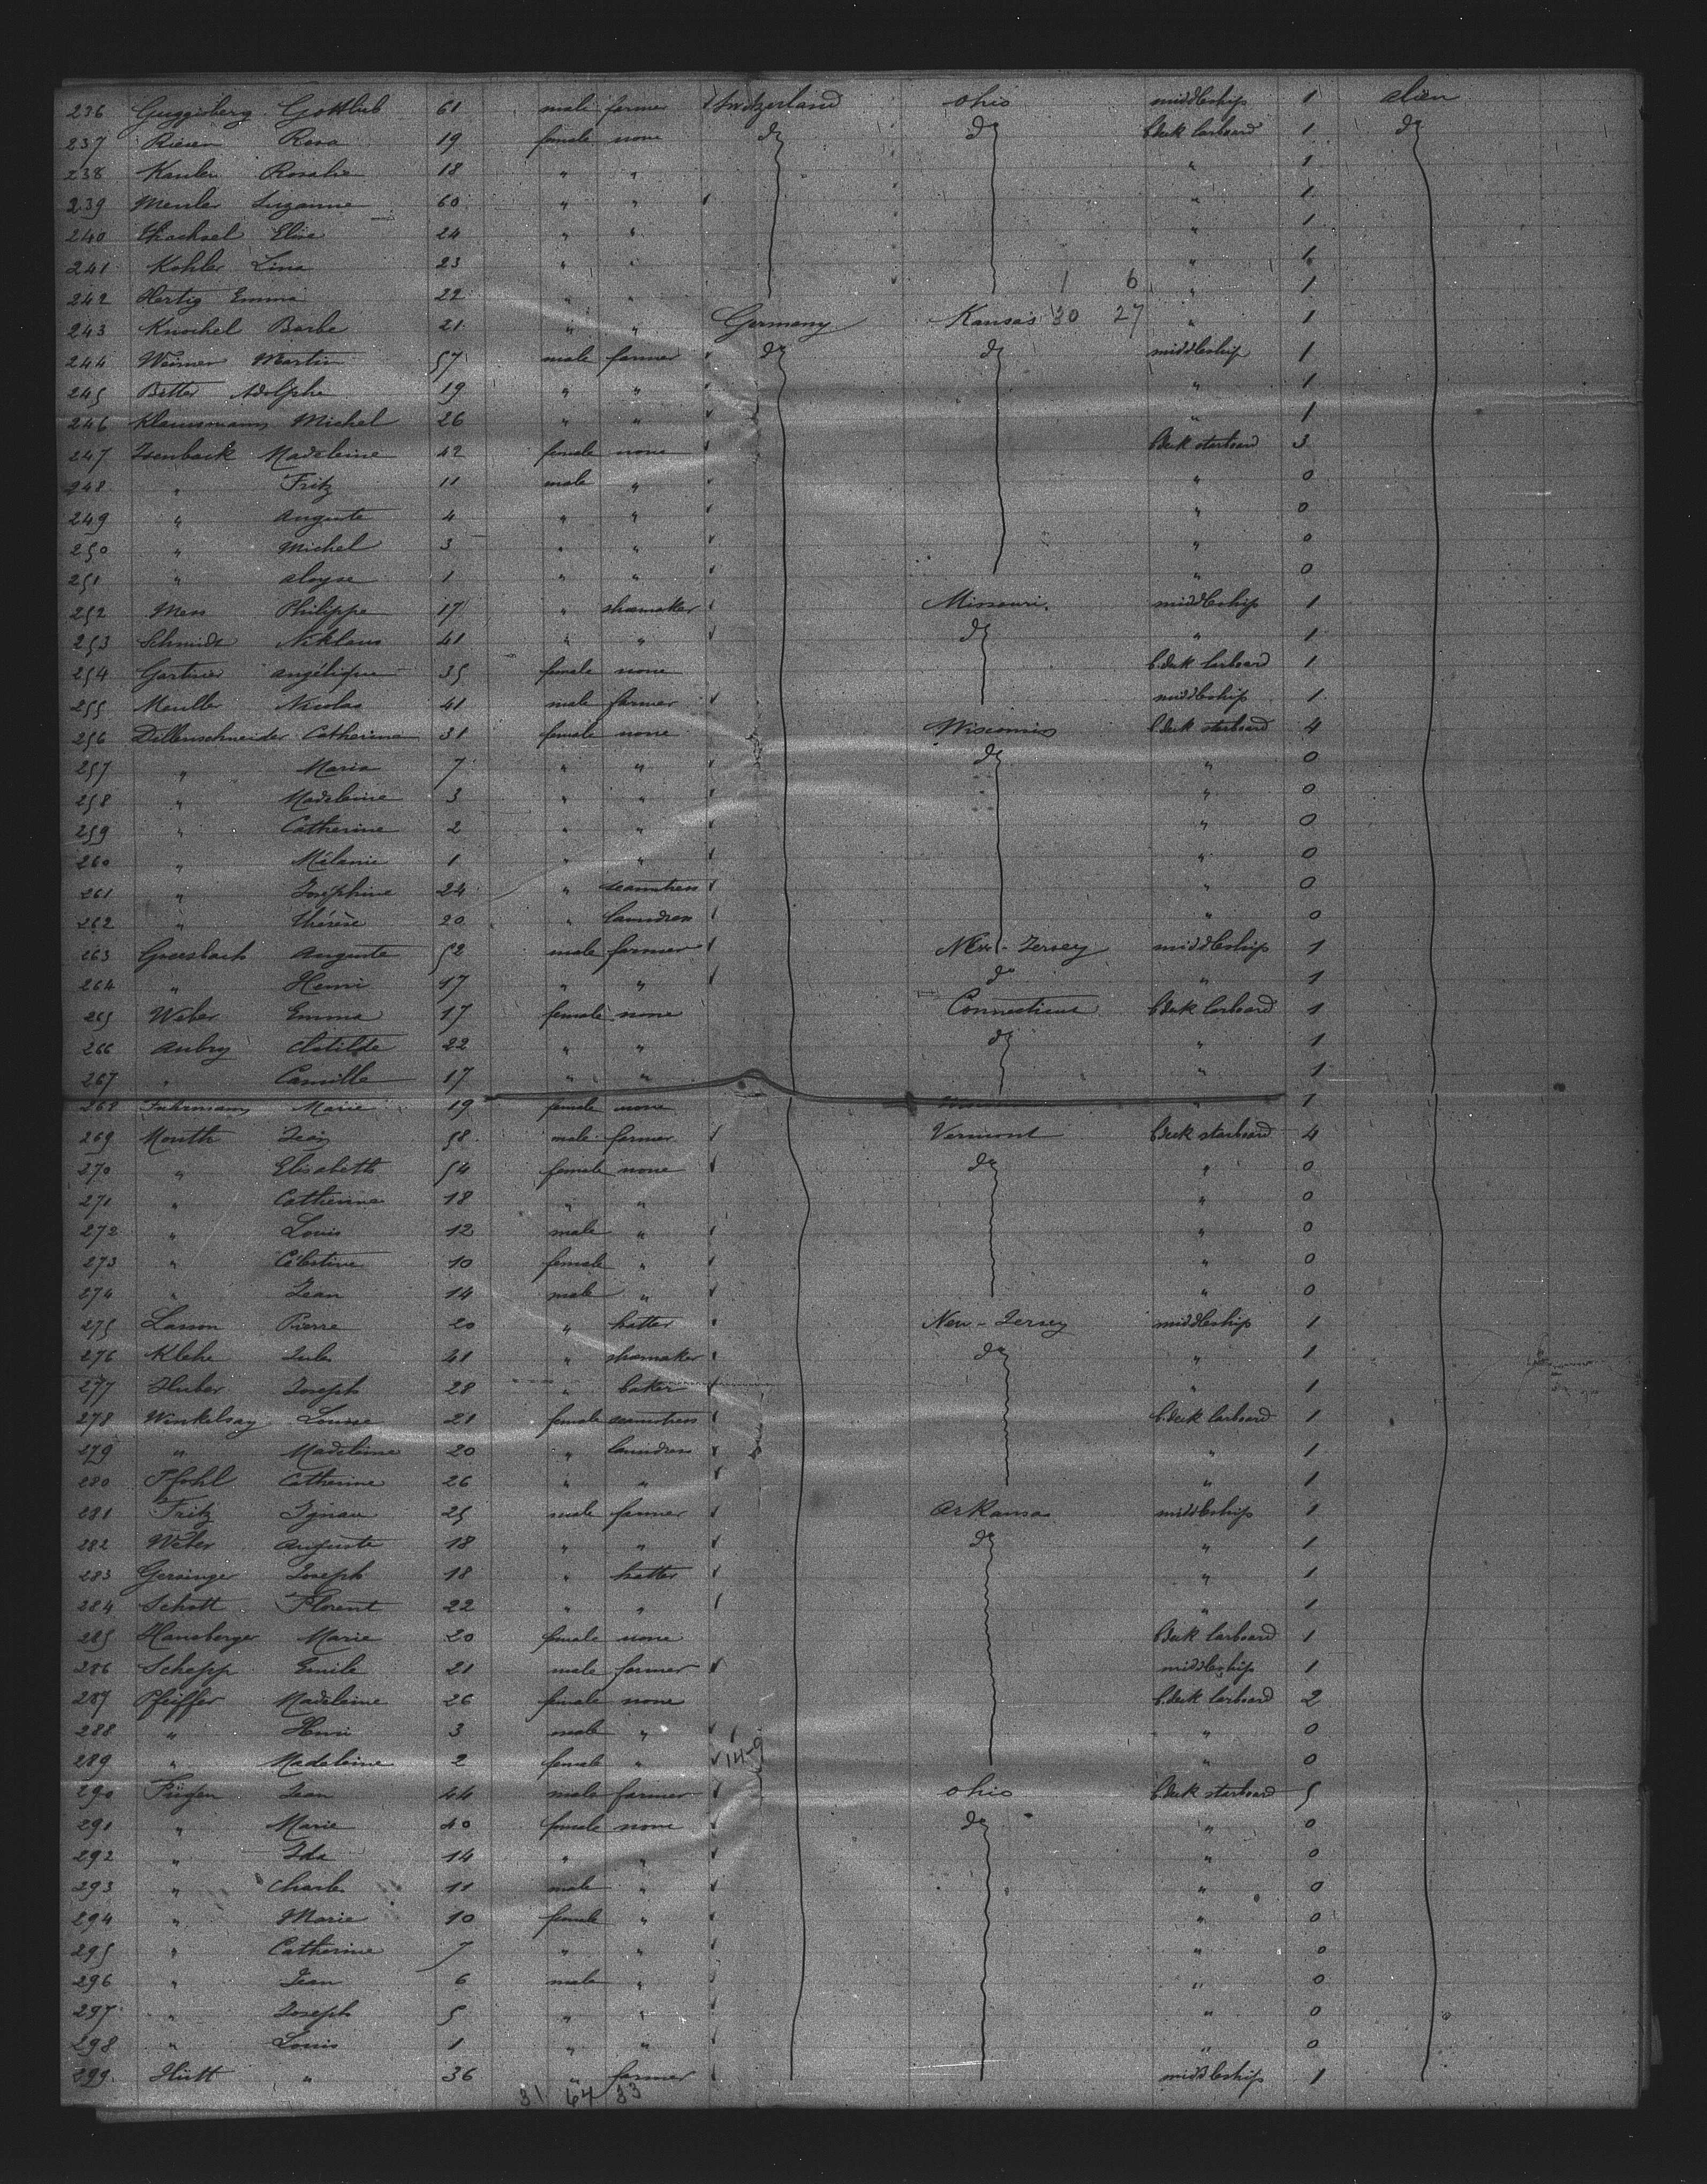 236 Guggisberg Gottlieb 61 male farmer Switzerland Ohio middleship 1 alien
237 Riesen Rosa 19 female none do do b.deck larboard 1 do
238 Rosalie 18 " " " 1
239 Suzanne 60 " " " 1
240 Elise 24 " " " 1
241 Kohler Lina 23 " " " 1
1 6
242 Hertig Emma 22 " " " 1
243 Knochel Barbe 21 " " Germany Kansas 30 27 " 1
244 Martin 57 male farmer do do middleship 1
245 Adolphe 19 " " " 1
246 Michel 26 " " " 1
247 Isenback Madeleine 42 female none Bdeck starboard 3
248 " Fritz 11 male " " 0
249 " Auguste 4 " " " 0
250 " Michel 3 " " " 0
251 " Aloyse 1 " " " 0
252 Philippe 17 " shoemaker Missouri. middleship 1
253 Schmidt Niklaus 41 " " do " 1
254 Gartner Angélique 35 female none b.deck larboard 1
255 Meuller Nicolas 41 male farmer middleship 1
256 Dillenschneider Catherine 31 female none Wisconsis b.deck starboard 4
257 " Maria 7 " " do " 0
258 " Madeleine 3 " " " 0
259 " Catherine 2 " " " 0
260 " Mélanie 1 " " " 0
261 " Joséphine 24 " seamtress " 0
262 " Thérèse 20 " laundress " 0
263 Auguste 52 male farmer New-Jersey middleship 1
264 " Henri 17 " " do " 1
265 Weber Emma 17 female none Connecticut bdeck larboard 1
266 Aubry Clotilde 22 " " do " 1
267 " Camille 17 " " " 1
268 Fuhrmann Marie 19 female none " 1
269 Mouth Jean 58 male farmer Vermont bdeck starboard 4
270 " Elisabeth 54 female none do " 0
271 " Catherine 18 " " " 0
272 " Louis 12 male " " 0
273 " Célestine 10 female " " 0
274 " Jean 14 male " " 0
275 Lasson Pierre 20 " hatter New-Jersey middleship 1
276 Klehe Jules 41 " shoemaker do " 1
277 Huber Joseph 28 " baker " 1
278 Winkelsay Louise 21 female seamtress b.deck larboard 1
279 " Madeleine 20 " laundress " 1
280 Pfohl Catherine 26 " " " 1
281 Fritz Ignace 25 male farmer Arkansas middleship 1
282 Weber Auguste 18 " " do " 1
283 Gersinger Joseph 18 " hatter " 1
284 Schott Florent 22 " " " 1
285 Hansberger Marie 20 female none Bdeck larboard 1
286 Schepp Emile 21 male farmer middleship 1
287 Pfeiffer Madeleine 26 female none b.deck larboard 2
288 " Henri 3 male " " 0
289 " Madeleine 2 female " " 0
290 Jean 44 male farmer Ohio b.deck starboard 5
291 " Marie 40 female none do " 0
292 " Ida 14 " " " 0
293 " Charles 11 male " " 0
294 " Marie 10 female " " 0
295 " Catherine 7 " " " 0
296 " Jean 6 male " " 0
297 " Joseph 5 " " " 0
298 " Louis 1 " " " 0
299 Hütt " 36 " farmer middleship 1
31 64 33